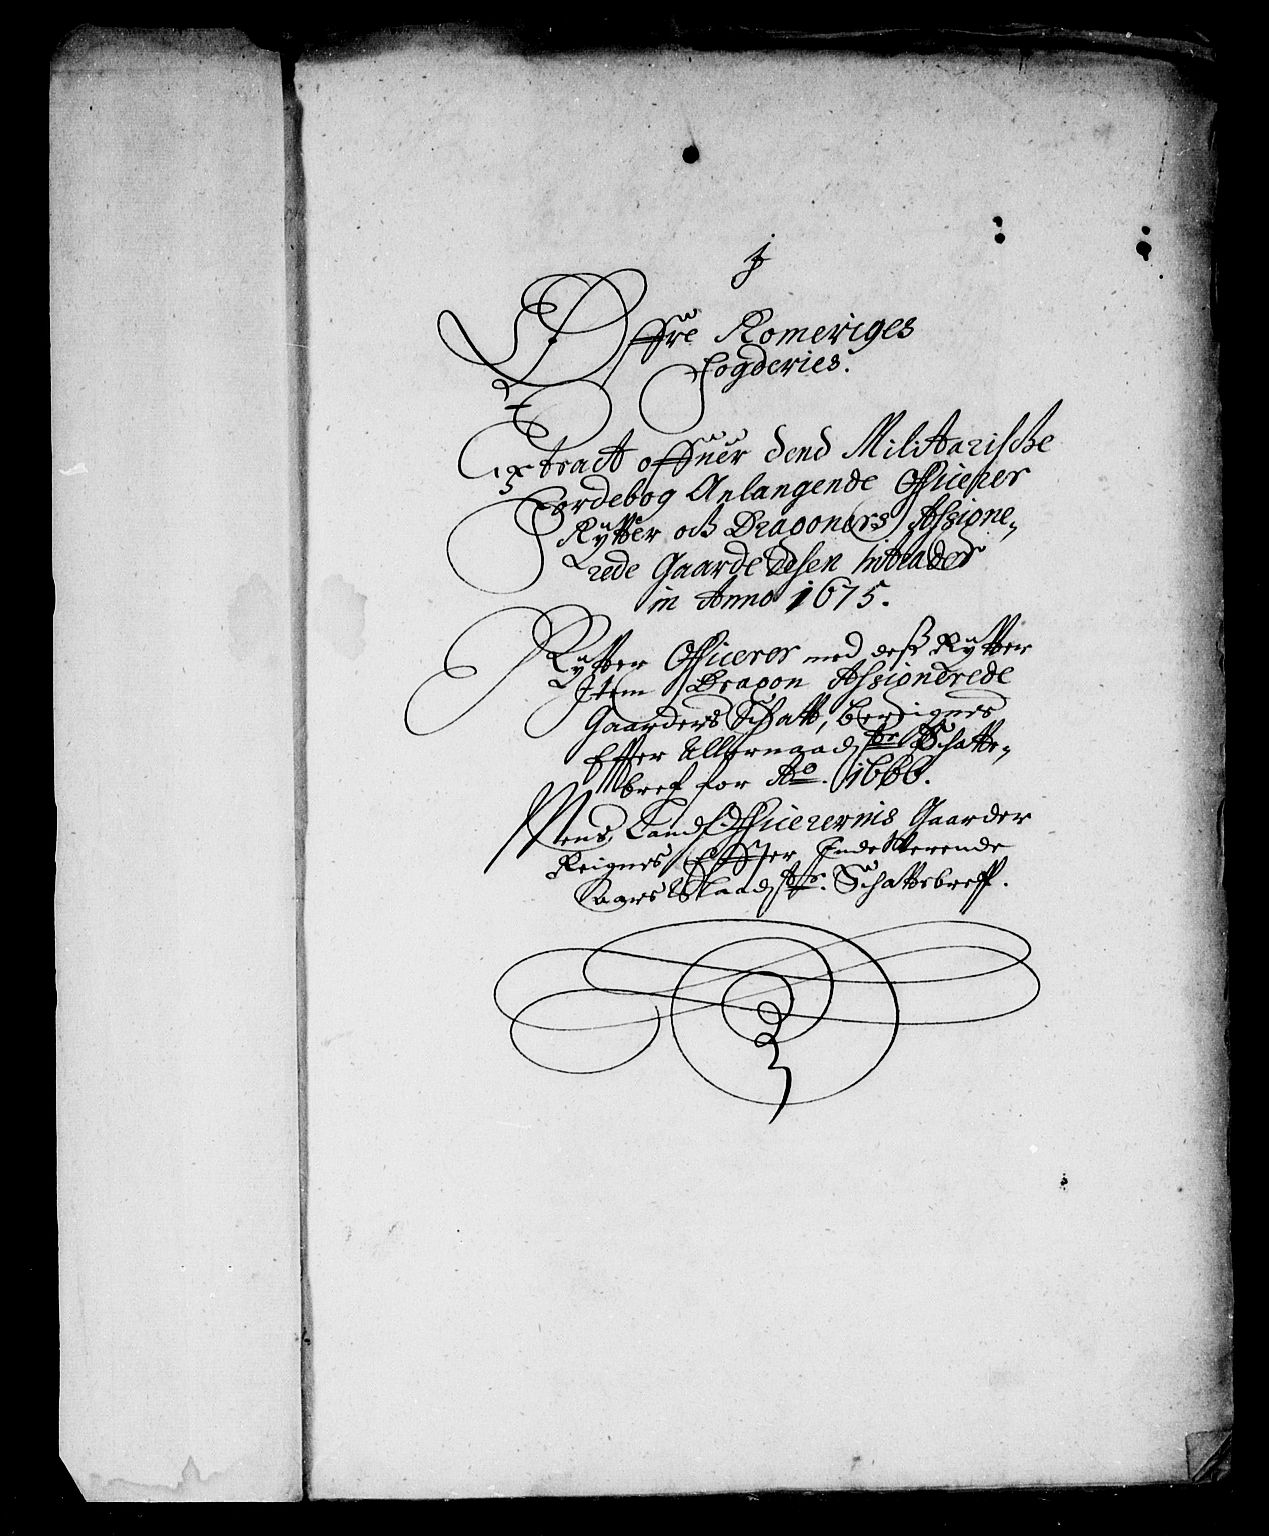 Øffre Romeriges
Fogderies.
Extract offuer dend Militarische
Jordebog Anlangende Officerer
Rytter och Dragoners Assigne¬
rede Gaarde
in Anno 1675.
Rytter Officerer med deß Rytter
Item Dragon Assignerede
Gaarders Schatt, berignes
Effter Ulfornaads Schatte¬
bref for Ao. 1666.
Mens Land Officerernis Gaarder
Reignes Effter Inde Werende
Aars Schattebreff.